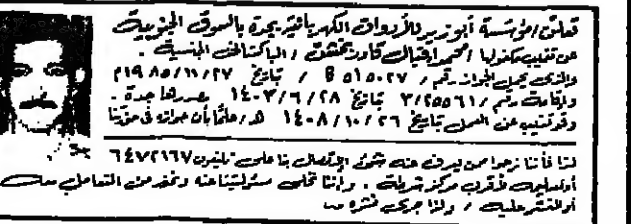 تعلن / مؤسسة أبو زيد للأدوات الكهربائية بجدة بالسوق الجنوبية
عن تغيب مكفولها / محمد اقبال قادر بخش / الباكستاني الجنسية .
والذي يحمل الجواز رقم / B ٥١٥٠٢٧ / بتاريخ ١٩٨٥/١١/٢٧م
وإقامة رقم / ٣/٢٥٥٦١ بتاريخ ١٤٠٣/٦/٢٨ مصدرها جدة .
وقد تغيب عن العمل بتاريخ ١٤٠٨/١٠/٢٦ هـ / علماً بأن جوازه في حوزتنا
لذا فأننا نرجوا ممن يعرف عنه شئ الإتصال بنا على تليفون ٦٤٧٢٦٦٧
أو تسليمه لأقرب مركز شرطة . وإننا نخلي مسئوليتنا عنه ونحذر من التعامل معه
أو التستر عليه / ولذا جرى نشره